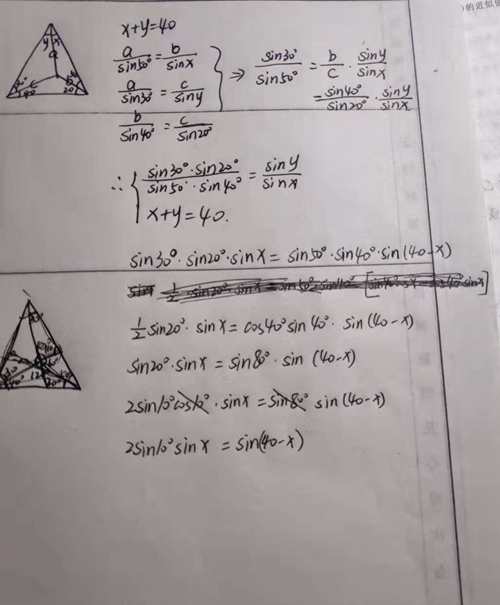 的近似值
x+y=40
a/sin50° = b/sinx
a/sin30° = c/siny
b/sin40° = c/sin20°
⇒ sin30°/sin50° = b/c · siny/sinx
= sin40°/sin20° · siny/sinx
∴ { sin30°·sin20°/sin50°·sin40° = siny/sinx
x+y=40.
sin30°·sin20°·sinx = sin50°·sin40°·sin(40-x)
1/2 sin20°·sinx = cos40°sin40°·sin(40-x)
sin20°·sinx = sin80°·sin(40-x)
2sin10°cos10°·sinx = sin80° sin(40-x)
2sin10°sinx = sin(40-x)